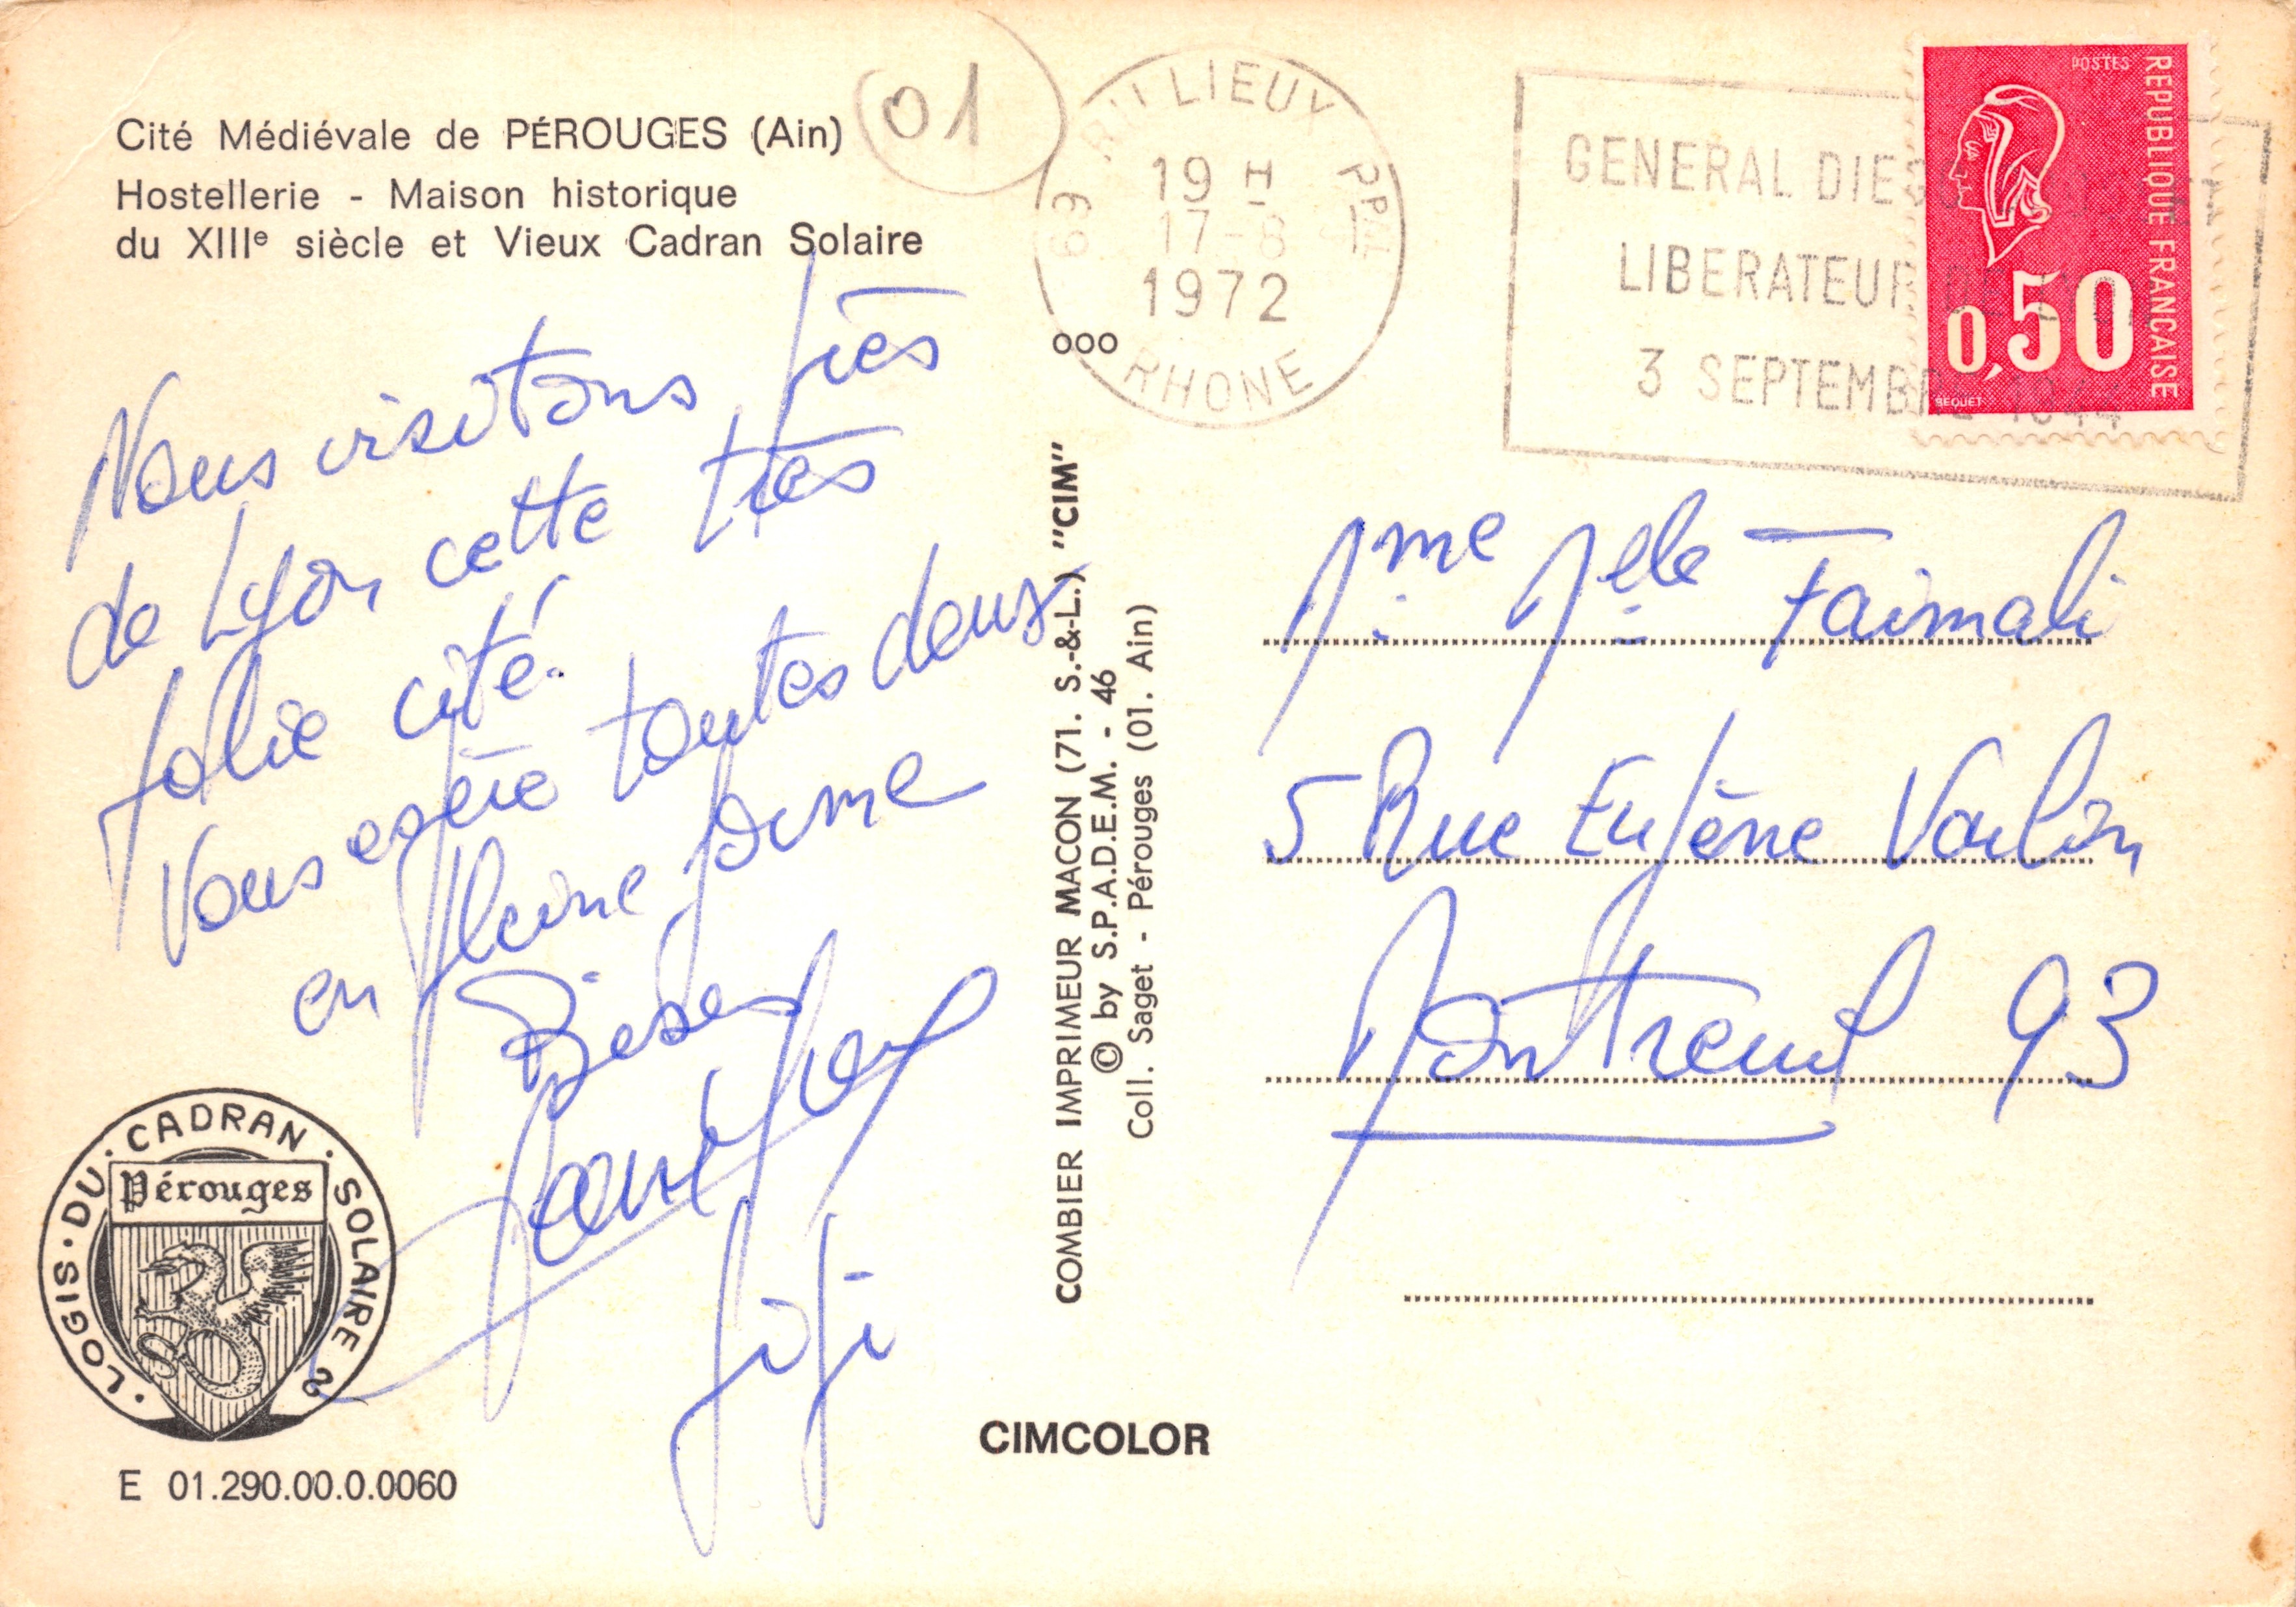 Cité Médiévale de PÉROUGES (Ain)
Hostellerie - Maison historique
du XIIIᵉ siècle et Vieux Cadran Solaire
01
LIEUX PPAL
69
19 H
17-8
1972
RHONE
ooo
GENERAL DIEGO
LIBERATEUR DE
3 SEPTEMBRE 1944
POSTES
REPUBLIQUE FRANCAISE
0,50
BEQUET
Nous visitons près
de Lyon cette très
jolie cité.
Vous espère toutes deux
en pleine forme
Bises
Jiji
COMBIER IMPRIMEUR MACON (71. S.-&-L.) "CIM"
© by S.P.A.D.E.M. - 46
Coll. Saget - Pérouges (01. Ain)
Mme Melle Faimali
5 Rue Eugène Varlin
Montreuil 93
LOGIS · DU · CADRAN · SOLAIRE 2
Pérouges
CIMCOLOR
E 01.290.00.0.0060